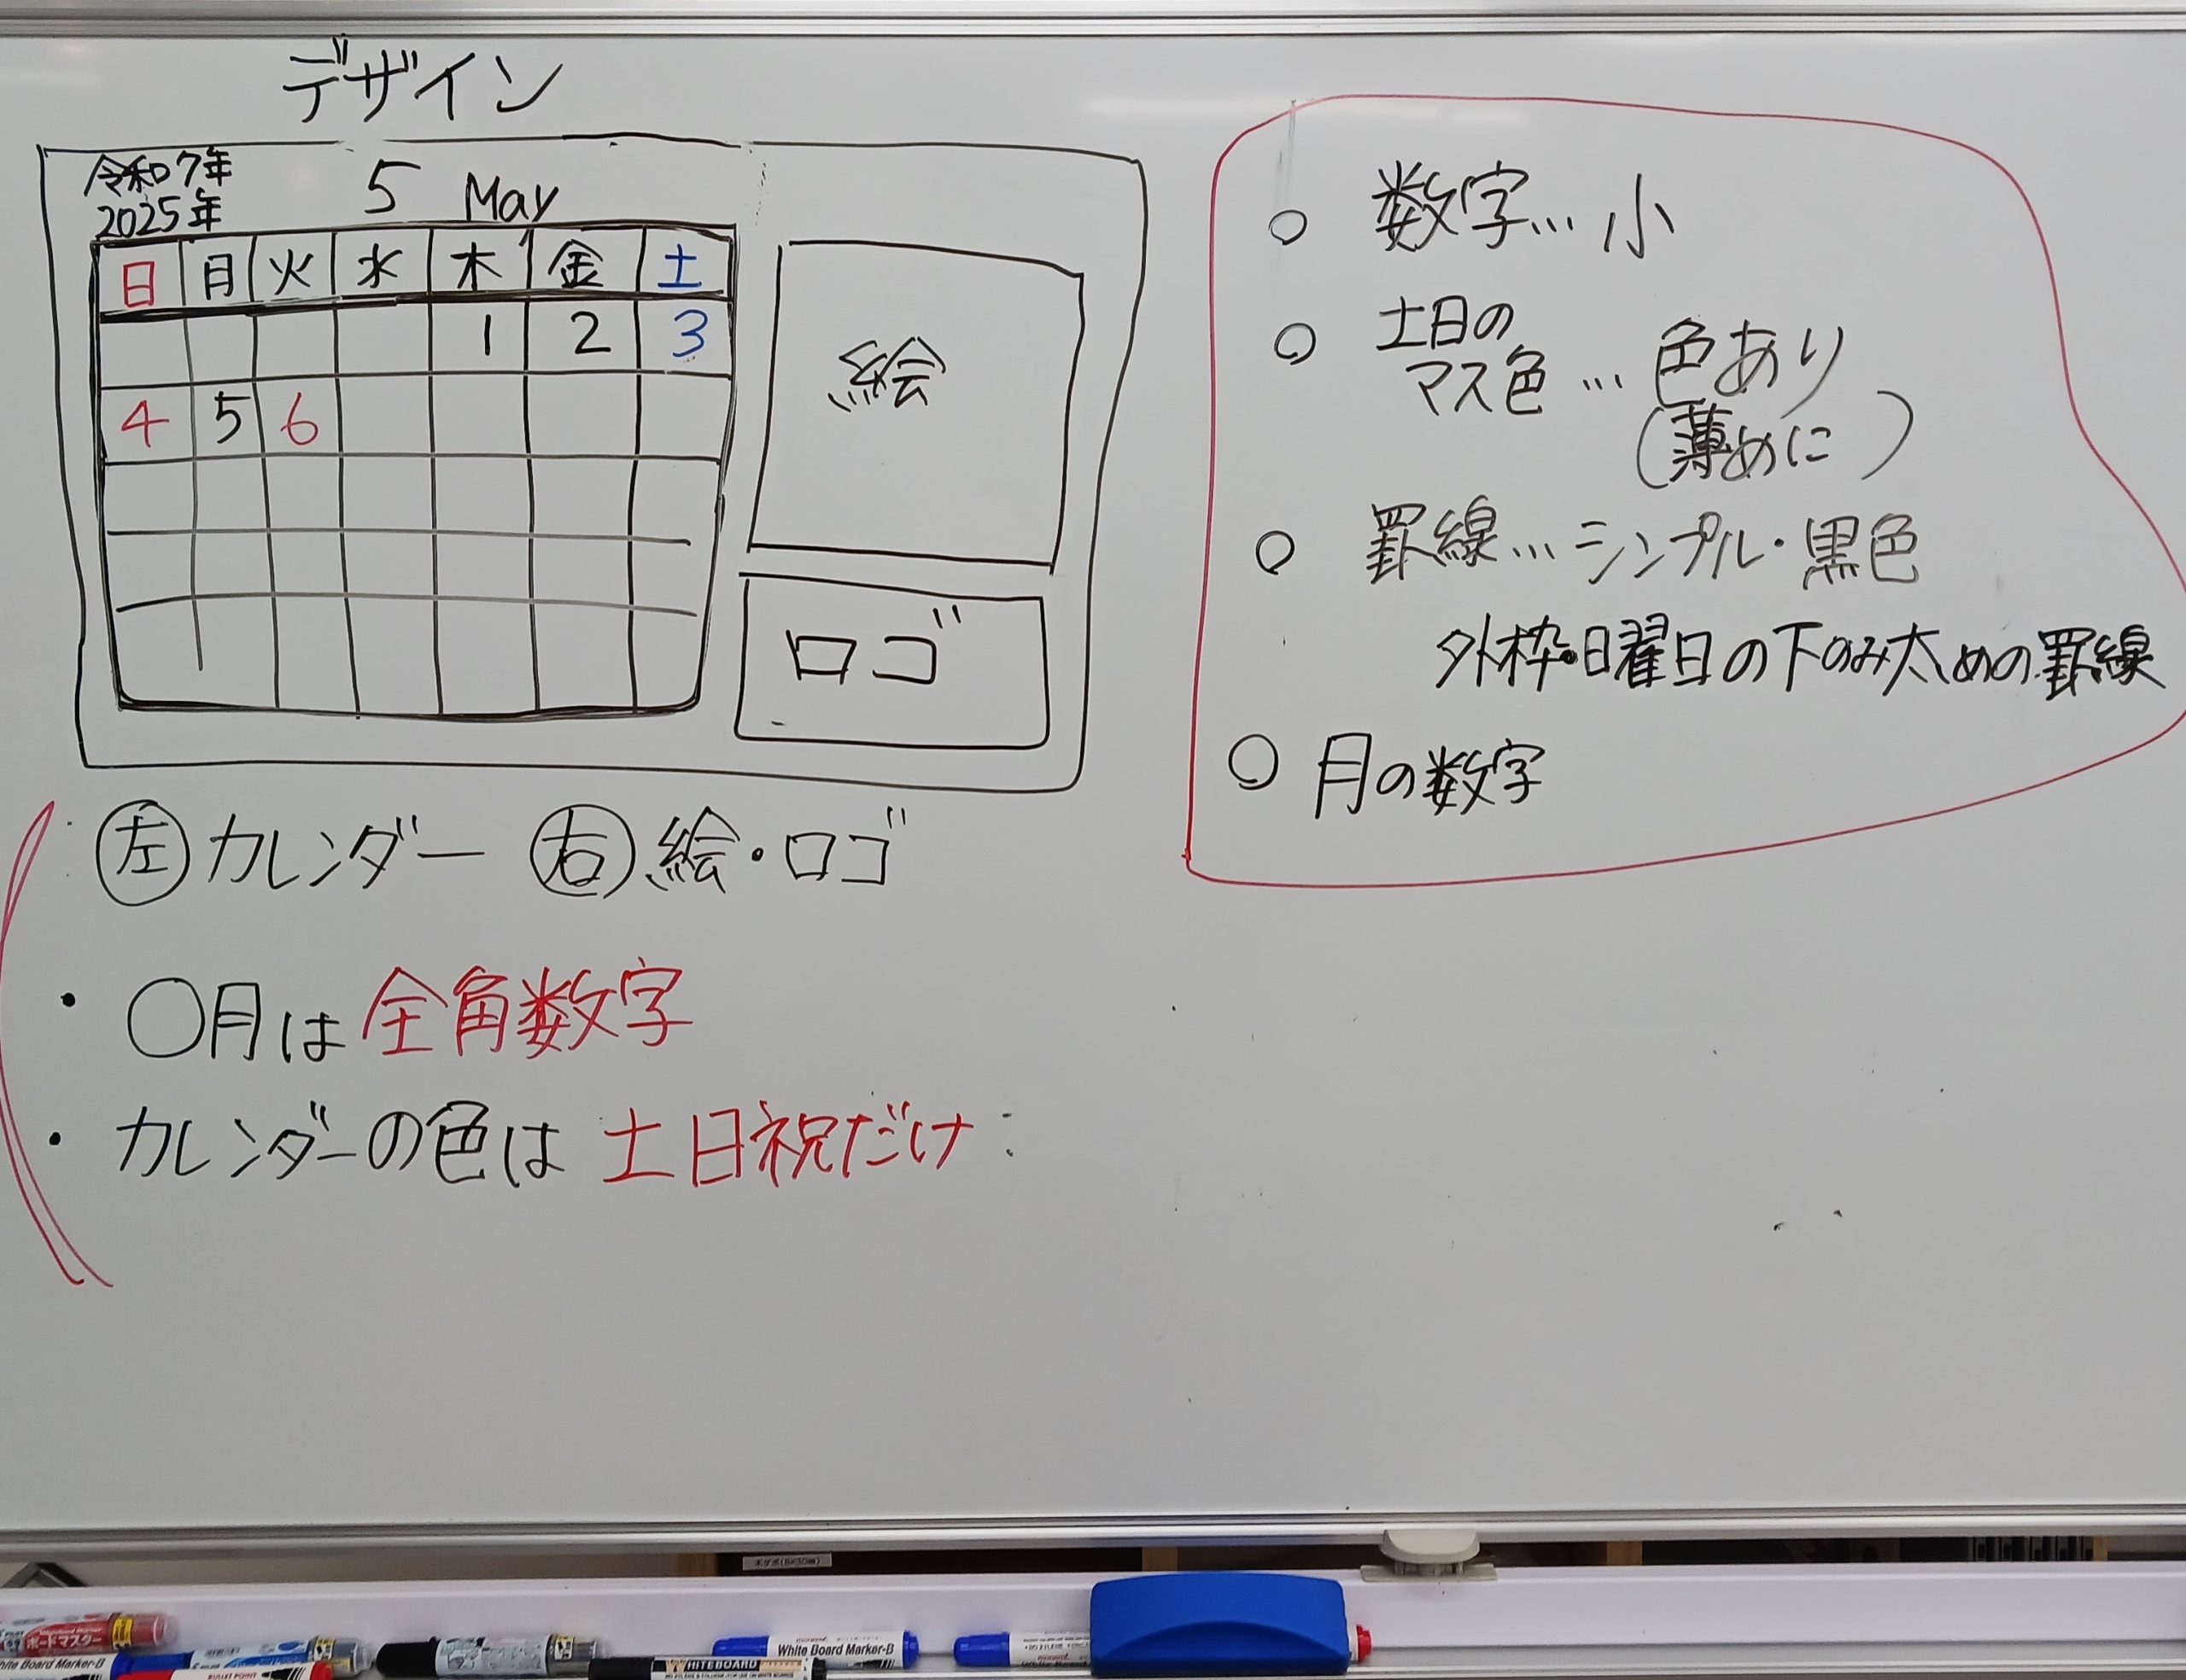 デザイン
令和7年
2025年
5 May
日 月 火 水 木 金 土
1 2 3
4 5 6
絵
ロゴ
左 カレンダー 右 絵・ロゴ
・〇月は全角数字
・カレンダーの色は土日祝だけ
○ 数字… 小
○ 土日の
マス色 … 色あり
(薄めに)
○ 罫線…シンプル・黒色
外枠・日曜日の下のみ太めの罫線
○ 月の数字
ボードマスター
White Board Marker-B
BULLET POINT
WHITEBOARD
White Board Marker-B